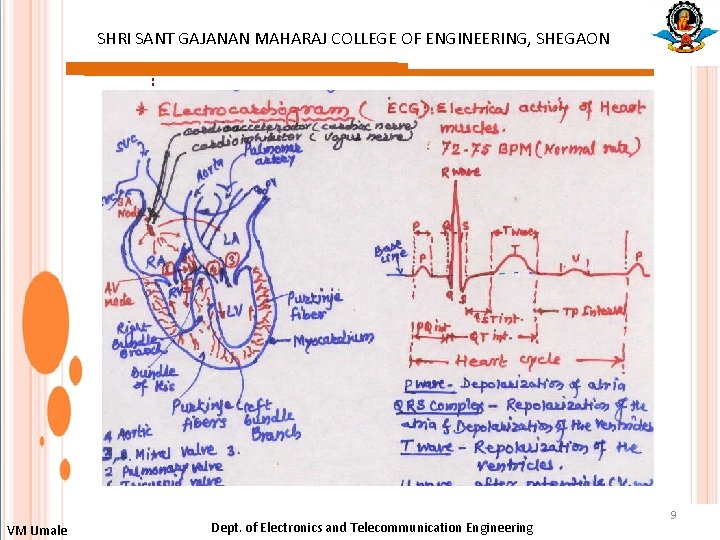 SHRI SANT GAJANAN MAHARAJ COLLEGE OF ENGINEERING, SHEGAON
* Electrocardiogram ( ECG): Electrical activity of Heart
muscles.
cardioaccelerator (cardiac nerve
cardioinhibitor ( vagus nerve
: 72-75 BPM (Normal rate)
SVC
Aorta
Pulmonar
artery
PV
SA
Node
LA
RA
1
4
3
AV
node
RV
LV
Purkinje
fiber
Myocardium
Right
Bundle
Branch
Bundle
of His
Purkinje
fibers
Left
bundle
Branch
4 Aortic
3, Mitral valve 3.
2 Pulmonary valve
R wave
P
Q
S
T wave
T
U
P
Base
Line
Q
S
ST int.
TP Interval
PQ int
QT int.
Heart cycle
P wave - Depolarization of atria
QRS complex - Repolarization of the
atria & Depolarization of the ventricles
T wave - Repolarization of the
ventricles.
after potentials
9
VM Umale
Dept. of Electronics and Telecommunication Engineering